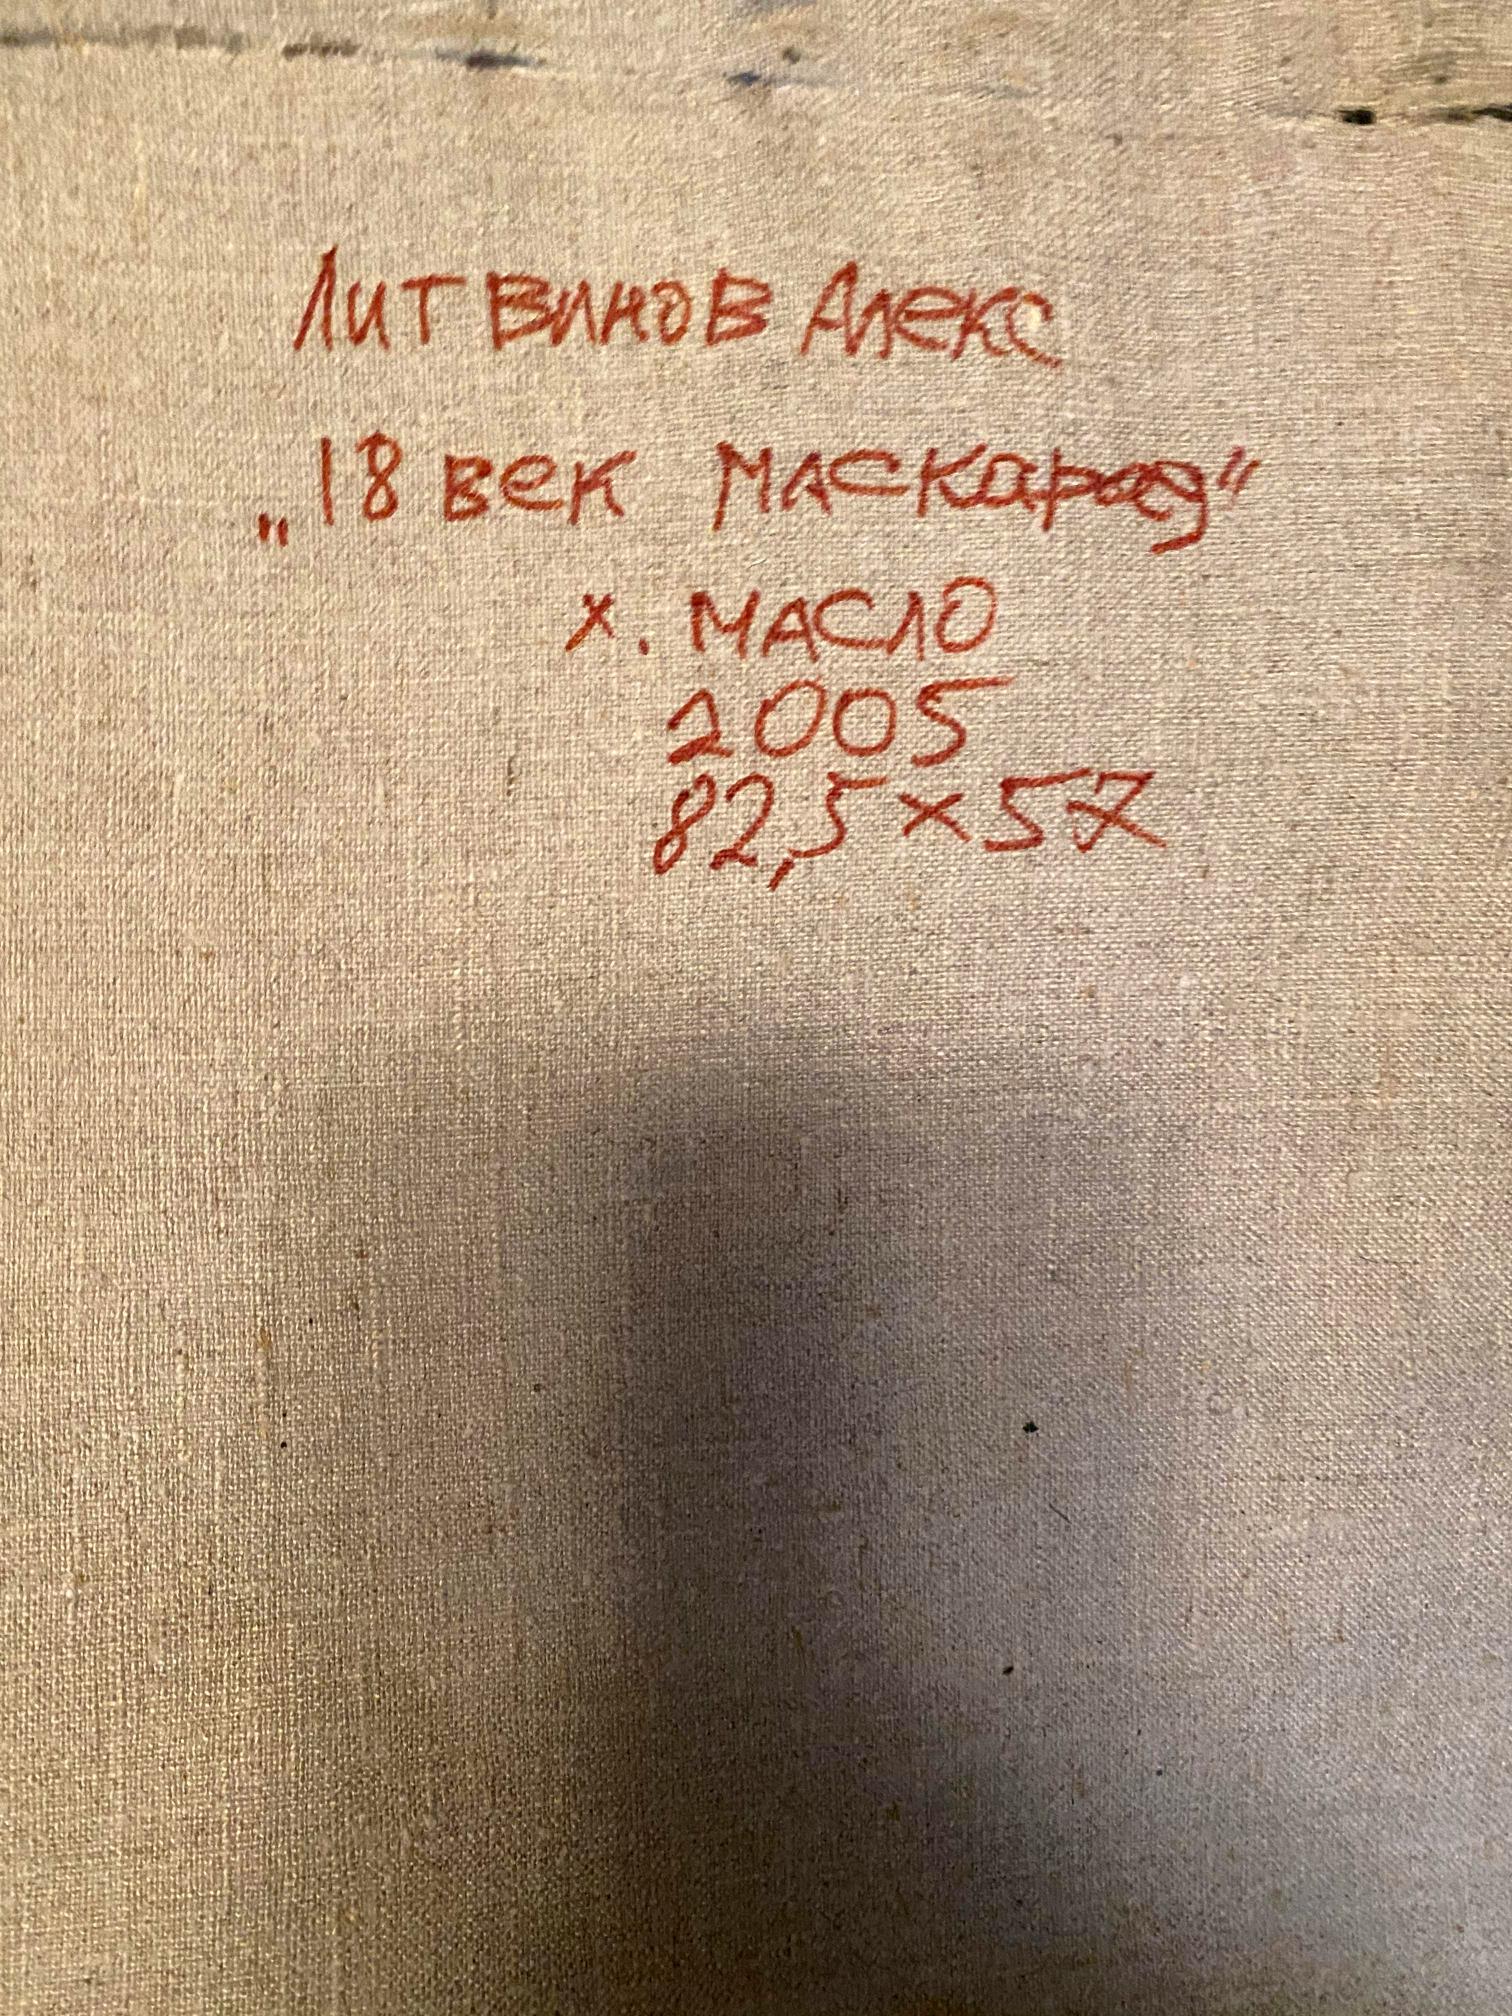 Литвинов Алекс
„18 век маскарад“
х. масло
2005
82,5 x 57